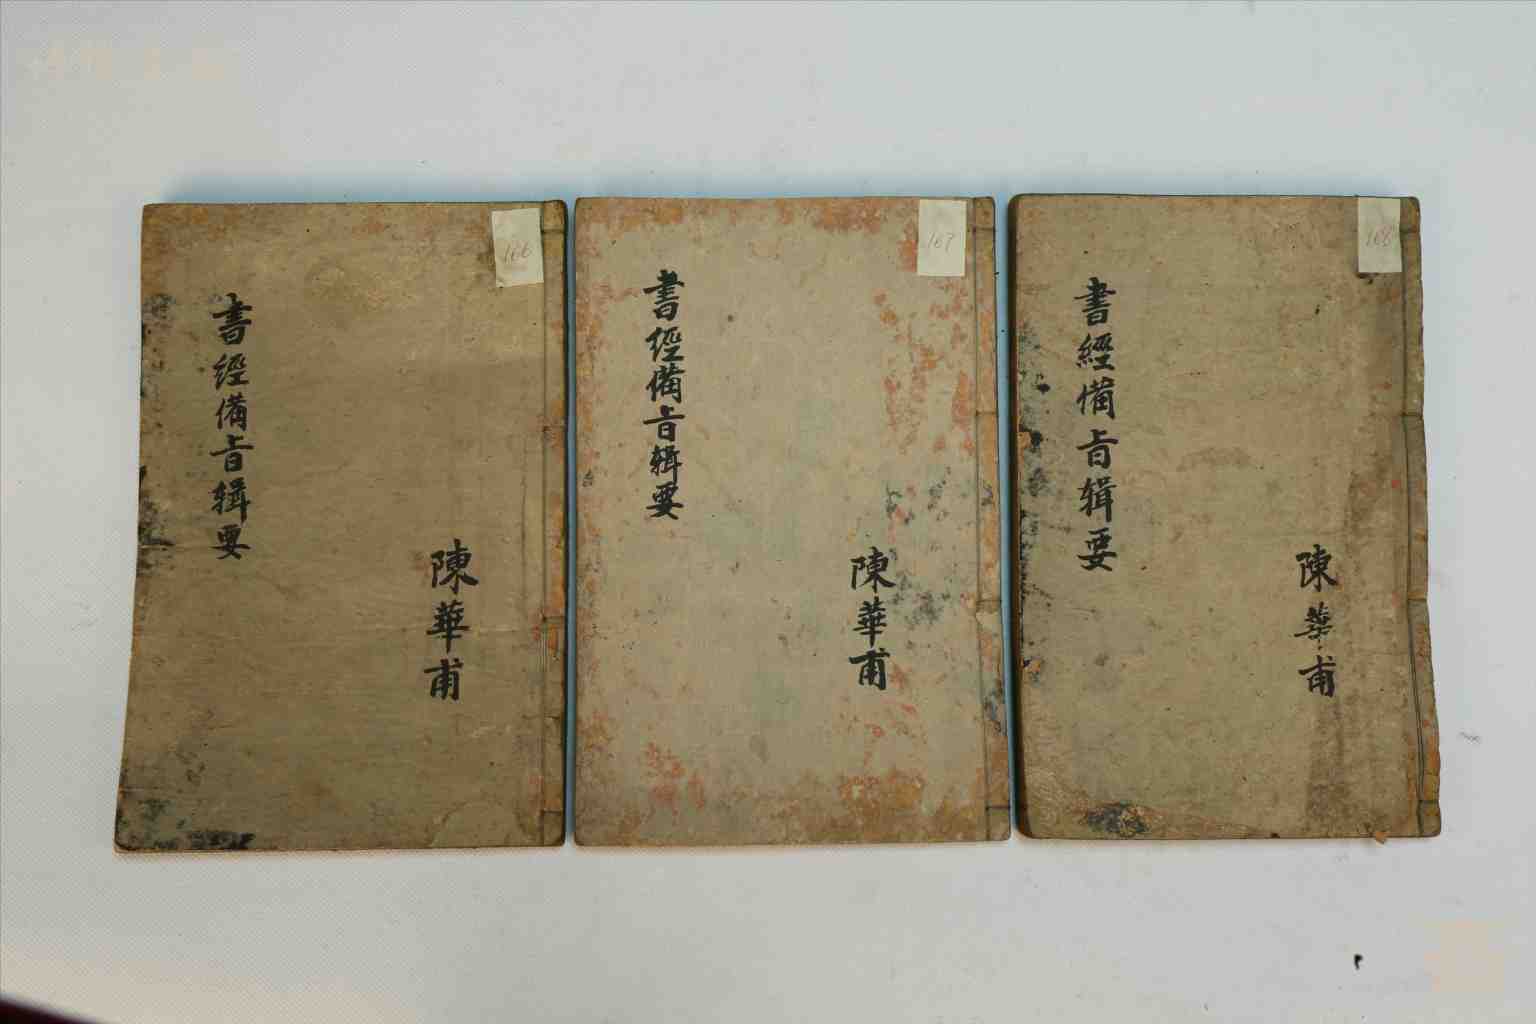 166
書經備旨輯要
陳華甫
167
書經備旨輯要
陳華甫
168
書經備旨輯要
陳華甫